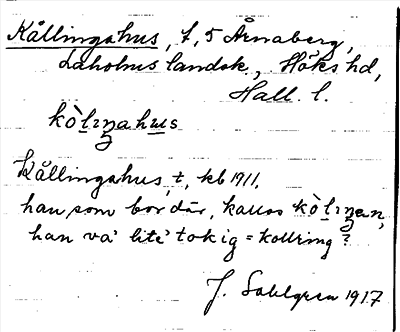 Kållingahus, t, 5 Årnaberg,
Laholms landsk., Höks hd,
Hall. l.
kò̀lıŋahus
Kållingahus, t, kb 1911,
han, som bor där, kallas kò̀lıŋan,
han va' lite' tokig = kollring?
J. Sahlgren 1917